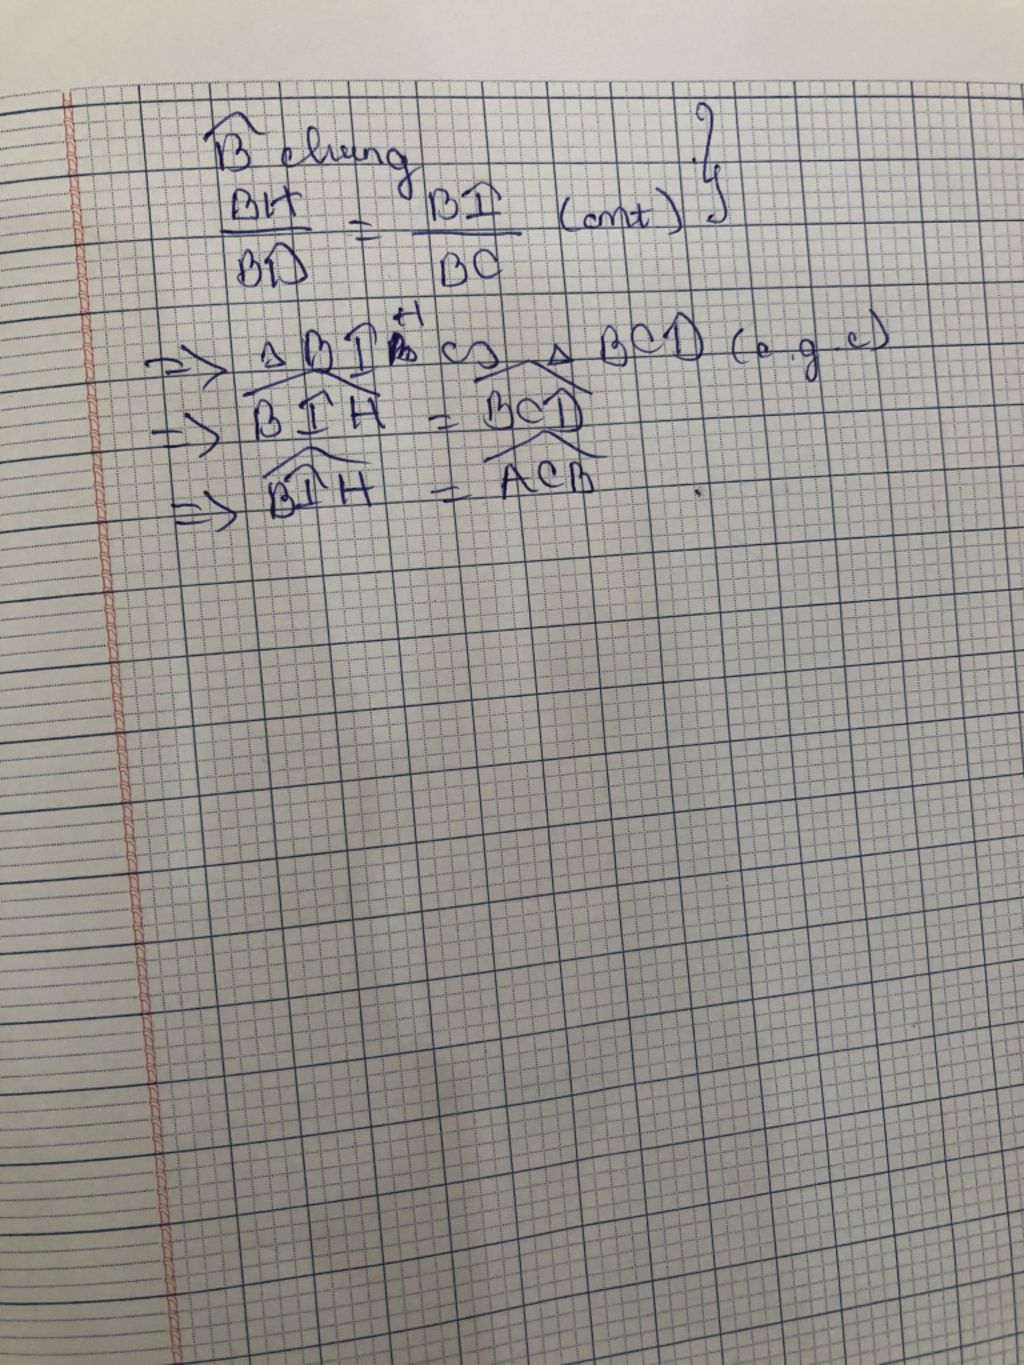 B̂ chung
BH/BD = BI/BC (cmt) }
=> Δ BIH ∽ Δ BCD (c.g.c)
=> \widehat{BIH} = \widehat{BCD}
=> \widehat{BIH} = \widehat{ACB}